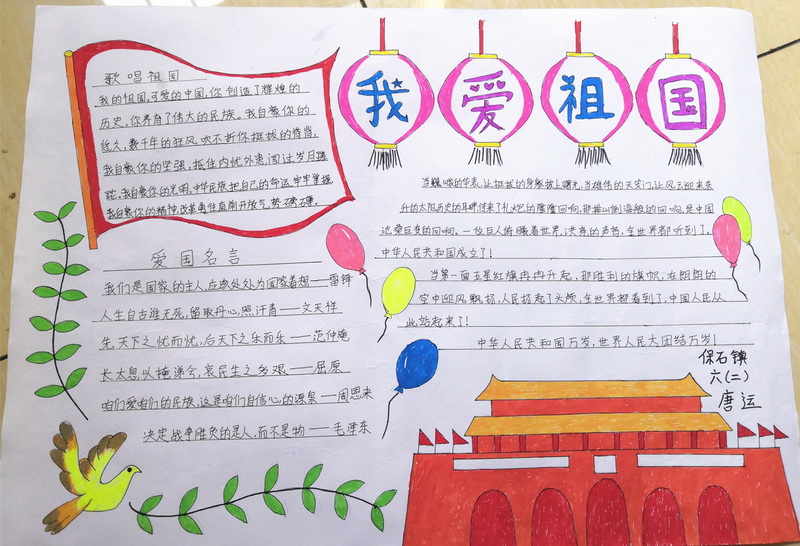 我爱祖国
歌唱祖国
我的祖国,可爱的中国,你创造了辉煌的
历史,你养育了伟大的民族。我自豪你的
悠久,数千年的狂风吹不折你挺拔的脊背,
我自豪你的坚强,抵住内忧外患闯过岁月蹉
跎,我自豪你的光明,中华民族把自己的命运牢牢掌握
我自豪你的精神,改革勇往直前开放气势磅礴。
爱国名言
我们是国家的主人,应该处处为国家着想——雷锋
人生自古谁无死,留取丹心照汗青——文天祥
先天下之忧而忧,后天下之乐而乐——范仲淹
长太息以掩涕兮,哀民生之多艰——屈原
咱们爱咱们的民族,这是咱们自信心的源泉——周恩来
决定战争胜负的是人,而不是物——毛泽东
当巍峨的华表,让挺拔的身躯披上曙光,当雄伟的天安门,让风云迎来东
升的太阳历史的耳畔传来了礼炮的隆隆回响,那排山倒海般的回响,是中国
沧桑巨变的回响。一位巨人俯瞰着世界,洪亮的声音,全世界都听到了,
中华人民共和国成立了!
当第一面五星红旗冉冉升起,那胜利的旗帜,在朗朗的
空中迎风飘扬,人民扬起了头颅,全世界都看到了,中国人民从
此站起来了!
中华人民共和国万岁,世界人民大团结万岁!
保石镇
六(二)
唐运